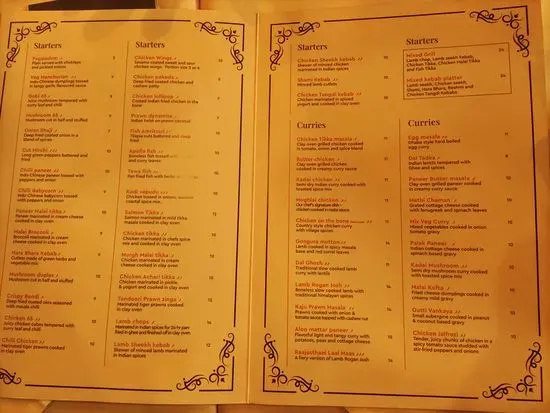 Starters
Poppadom 3
Plain served with chutneys
and pickled onions
Veg Manchurian 9
Indo-Chinese dumplings tossed
in tangy garlic flavored sauce
Gobi 65 8
Also mushroom tempered with
curry leaf and chilli
Mushroom 65
Mushroom cut in half and stuffed
Onion Bhaji
Deep fried coated onion in a
blend of spices
Cut Mirchi
Long green peppers battered and
fried
Chilli paneer 10
Indo-Chinese paneer tossed with
peppers and onion
Chilli Babycorn 9
Indo-Chinese babycorn tossed
with peppers and onion
Paneer Malai tikka 10
Marinated paneer in cream cheese
cooked in clay oven
Malai Broccoli
Broccoli marinated in cream
cheese cooked in clay oven
Hara Bhara Kebab
Cutlets made of green herbs
and vegetable mix
Mushroom duplex 10
Mushroom cut in half and stuffed
Crispy Bendi 9
Deep fried coated okra seasoned
with masala chilli
Chicken 65 10
Juicy chicken cubes tempered with
curry leaf and chilli
Chilli Chicken 10
Marinated tiger prawns cooked
in clay oven
Starters
Chicken Wings 7
Sesame coated sweet and sour
chicken wings. Portion size 3 or 6
Chicken pakoda 7
Deep fried coated chicken and
cashew patty
Chicken lollipop 7
Coated Indian fried chicken in the
bone
Prawn dynamite
Indian twist on prawn coconut
Fish Amritsari
Tilapia cuts battered and deep
fried
Apollo fish
Boneless fish tossed with
and curry leaves
Tawa fish
Pan fried fish with
Kodi vepudu
Chicken tossed in onions,
coastal spice mix
Salmon Tikka
Salmon marinated in mild tikka
masala cooked in clay oven
Chicken tikka 10
Chicken marinated in chefs spice
mix and cooked in clay oven
Murgh Malai tikka 10
Chicken marinated in cream
cheese cooked in clay oven
Chicken Achari tikka 10
Chicken marinated in pickle
& yogurt and cooked in clay oven
Tandoori Prawn zinga 14
Marinated tiger prawns cooked
in clay oven
Lamb chops 14
Marinated in Indian spices for 24hr pan-
fried in ghee and finished off in clay oven
Lamb Sheekh kebab 12
Skewer of minced lamb marinated
in Indian spices
Starters
Chicken Sheekh kebab
Skewer of minced chicken
marinated in Indian spices
Shami Kebab
Minced lamb cutlets
Chicken Tangdi kebab
Chicken marinated in spiced
yogurt and cooked in clay oven
Curries
Chicken Tikka masala 11
Clay oven grilled chicken cooked
in tomato, onion and spice blend
Butter chicken 11
Clay oven grilled chicken
cooked in creamy curry sauce
Kadai chicken 11
Semi dry Indian curry cooked with
toasted spice mix
Mughlai chicken 11
Our chefs signature dish -
chicken cooked in malai sauce
Chicken on the bone
Country style chicken curry
with village spices
Gongura mutton 14
Lamb cooked in spicy masala
base and red sorrel leaves
Dal Ghosh 11
Traditional slow cooked lamb
curry with lentils
Lamb Rogan Josh
Boneless slow cooked lamb with
traditional himalayan spices
Kaju Prawn Masala
Prawns cooked with onion &
tomato sauce topped with cashew nut
Aloo mattar paneer
Flavorful light and tangy curry with
potatoes, peas and cottage cheese
Raajasthani Laal Maas
A fiery version of Lamb Rogan Josh
Starters
Mixed Grill 24
Lamb chop, Lamb seekh kebab,
Chicken Tikka, Chicken Malai Tikka
and Fish Tikka
Mixed kebab platter 24
Lamb seekh, Chicken seekh,
Shami, Hara Bhara, Reshmi and
Chicken Tangdi Kebabs
Curries
Egg masala 11
Dhaba style hard boiled
egg curry
Dal Tadka 9
Indian lentils tempered with
Ghee and spices
Paneer Butter masala 10
Clay oven grilled paneer cooked
in creamy curry sauce
Methi Chaman 10
Grated cottage cheese cooked
with fenugreek and spinach leaves
Mix Veg Curry 10
Mixed vegetables cooked in onion
tomato gravy
Palak Paneer 10
Indian cottage cheese cooked in
spinach based gravy
Kadai Mushroom 10
Semi dry mushroom curry cooked
with toasted spice mix
Malai Kofta
Fried cheese dumplings cooked in
creamy mild gravy
Gutti Vankaya
Small aubergine cooked in peanut
& coconut based gravy
Chicken Jalfrezi
Tender, juicy chunks of chicken in a
spicy tomato sauce studded with
stir-fried peppers and onions